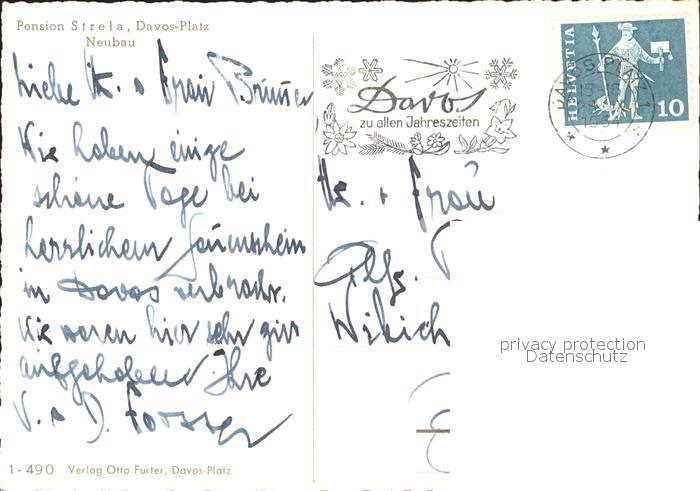 Pension Strela, Davos-Platz
Neubau
Liebe Hr. + Frau Brunner
Wir haben einige
schöne Tage bei
herrlichem Sonnenschein
in Davos verbracht.
Wir waren hier sehr gut
aufgehoben Ihre
V. + D. Forster
1-490 Verlag Otto Furter, Davos-Platz
Davos
zu allen Jahreszeiten
HELVETIA
10
DAVOS PLATZ 1
Hr. + Frau
privacy protection
Datenschutz